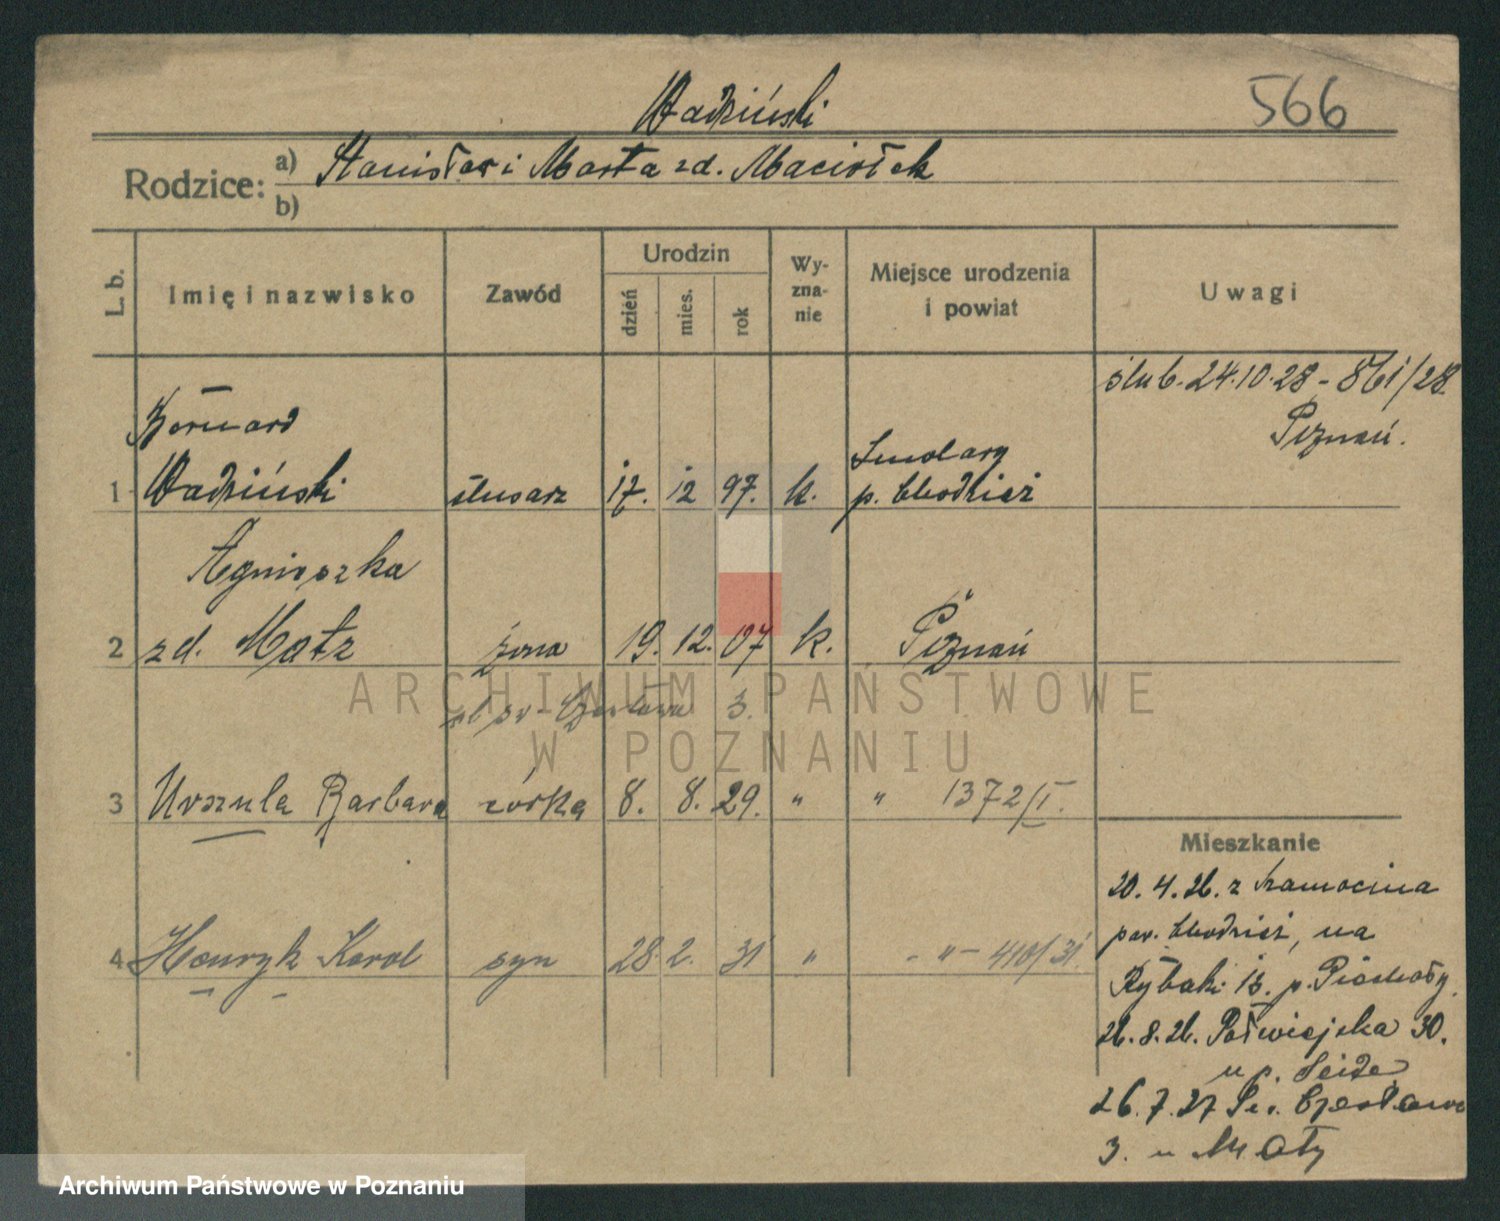 Wadziński
566
Rodzice:
a) Stanisław i Marta zd. Maciołek
b)
L. b.
Imię i nazwisko
Zawód
Urodzin
dzień
mies.
rok
Wy-
zna-
nie
Miejsce urodzenia
i powiat
Uwagi
ślub. 24.10.28 - 861/28
Poznań.
Bernard
Smolary
1 Wadziński ślusarz 17. 12 97. k. p. Chodzież
Agnieszka
2 zd. Matz żona 19. 12. 07 k. Poznań
ARCHIWUM PAŃSTWOWE
3.
W POZNANIU
3 Urszula Barbara córka 8. 8. 29. " " 1372/I.
4 Henryk Karol syn 28. 2. 31 " - " - 410/31
Mieszkanie
20. 4. 26. z Szamocina
pow. Chodzież, na
Rybaki 13. p.
26. 8. 26. Półwiejska 30.
u p. Seide
26. 7. 27 Św. Czesława
3. u Matz
Archiwum Państwowe w Poznaniu